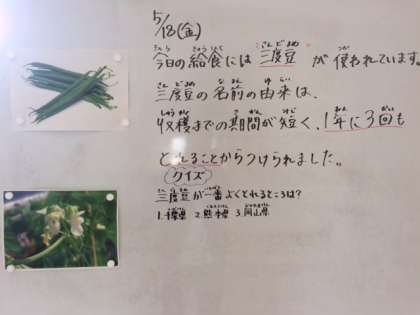 5/18(金)
今日の給食には 三度豆 が使われています。
三度豆の名前の由来は、
収穫までの期間が短く、1年に3回も
とれることからつけられました。
クイズ
三度豆が一番よくとれるところは?
1.千葉県 2.熊本県 3.岡山県